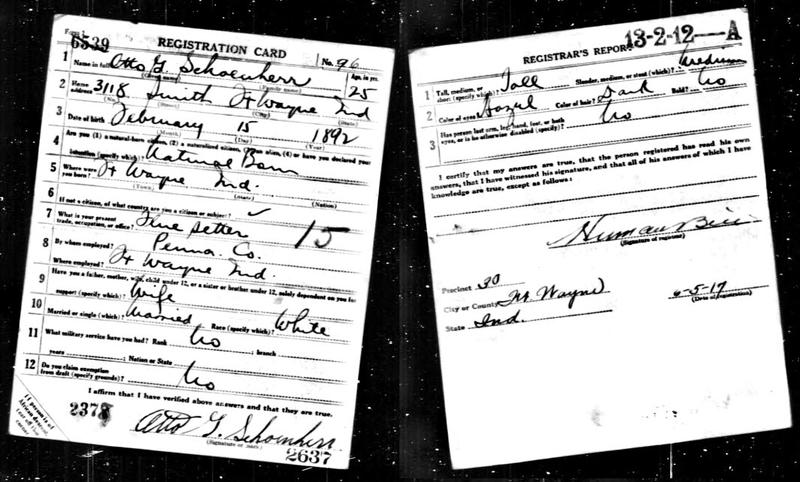 Form 1
6539
REGISTRATION CARD
No. 96
1 Name in full Otto G. Schoenherr 25
(Given name) (Family name) Age, in yrs.
2 Home address 3118 Smith Ft Wayne Ind
(No.) (Street) (City) (State)
3 Date of birth February 15 1892
(Month) (Day) (Year)
4 Are you (1) a natural-born citizen, (2) a naturalized citizen, (3) an alien, (4) or have you declared your
intention (specify which)? Natural Born
5 Where were you born? Ft Wayne Ind.
(Town) (State) (Nation)
6 If not a citizen, of what country are you a citizen or subject?
7 What is your present trade, occupation, or office? setter 15
8 By whom employed? Penna. Co.
Where employed? Ft Wayne Ind.
9 Have you a father, mother, wife, child under 12, or a sister or brother under 12, solely dependent on you for
support (specify which)? Wife
10 Married or single (which)? Married Race (specify which)? White
11 What military service have you had? Rank No ; branch
years ; Nation or State
12 Do you claim exemption from draft (specify grounds)? No
I affirm that I have verified above answers and that they are true.
2378
Otto G. Schoenherr
(Signature or mark)
2637
If person is of African descent, tear off this corner
13-2-12 A
REGISTRAR'S REPORT
1 Tall, medium, or short (specify which)? Tall Slender, medium, or stout (which)? Medium
2 Color of eyes? Hazel Color of hair? Dark Bald? No
3 Has person lost arm, leg, hand, foot, or both eyes, or is he otherwise disabled (specify)? No
I certify that my answers are true, that the person registered has read his own
answers, that I have witnessed his signature, and that all of his answers of which I have
knowledge are true, except as follows:
(Signature of registrar)
Precinct 30
City or County Ft. Wayne 6-5-17
State Ind. (Date of registration)